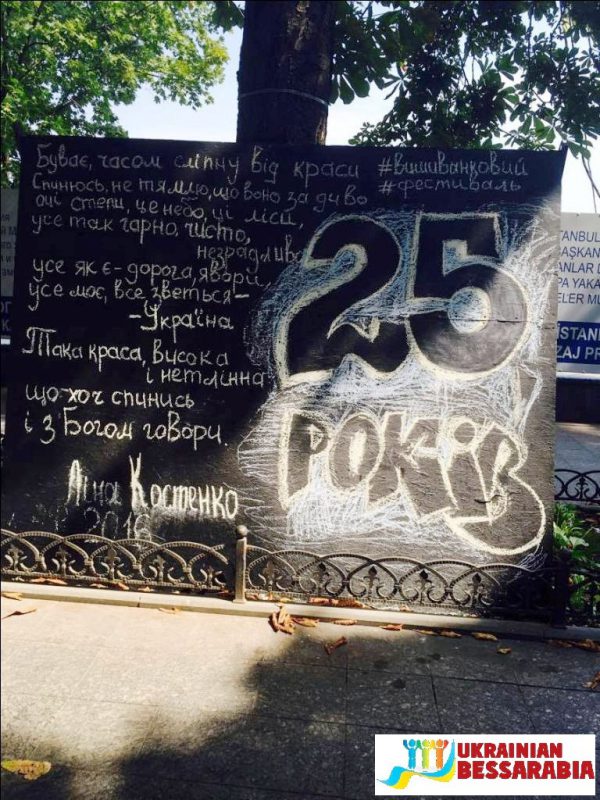 Буває, часом сліпну від краси
Спинюсь, не тямлю, що воно за диво
оці степи, це небо, ці ліси,
усе так гарно, чисто,
незрадливо
усе як є - дорога, явори
усе моє, все зветься -
- Україна
Така краса, висока
і нетлінна
що хоч спинись
і з Богом говори.
Ліна Костенко
2016
#вишиванковий
#фестиваль
25
РОКІВ
TANBUL
BAŞKAN
ANLAR D
PA YAKA
ELER MÜ
STAN
ZAJ PR
UKRAINIAN
BESSARABIA